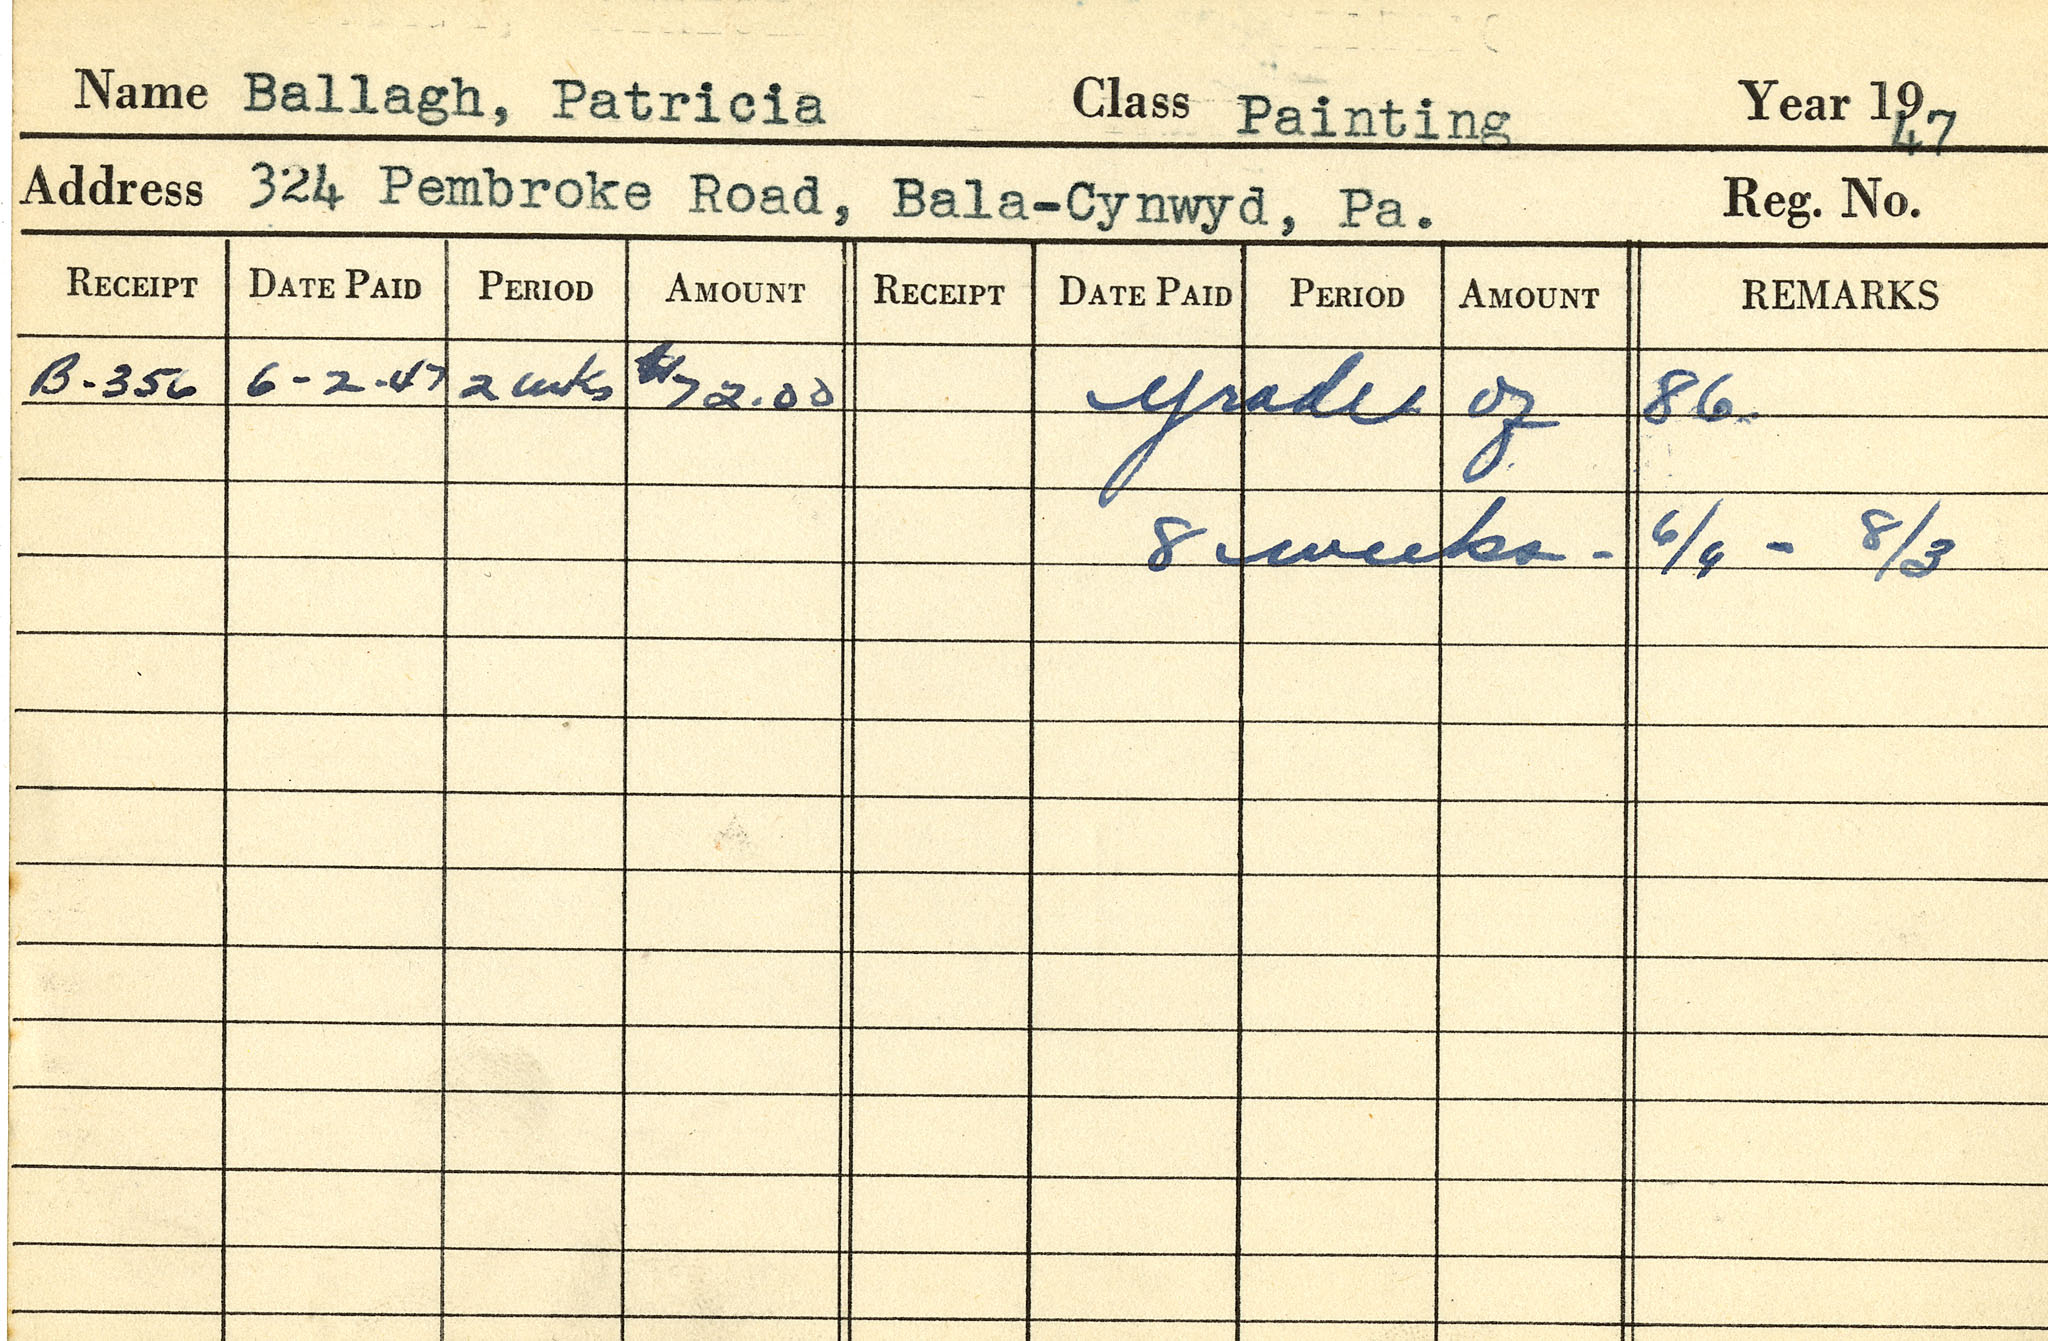 Name Ballagh, Patricia Class Painting Year 1947
Address 324 Pembroke Road, Bala-Cynwyd, Pa. Reg. No.
RECEIPT DATE PAID PERIOD AMOUNT RECEIPT DATE PAID PERIOD AMOUNT REMARKS
B-356 6-2-47 2 wks $72.00 grade of 86.
8 weeks - 6/9 - 8/3